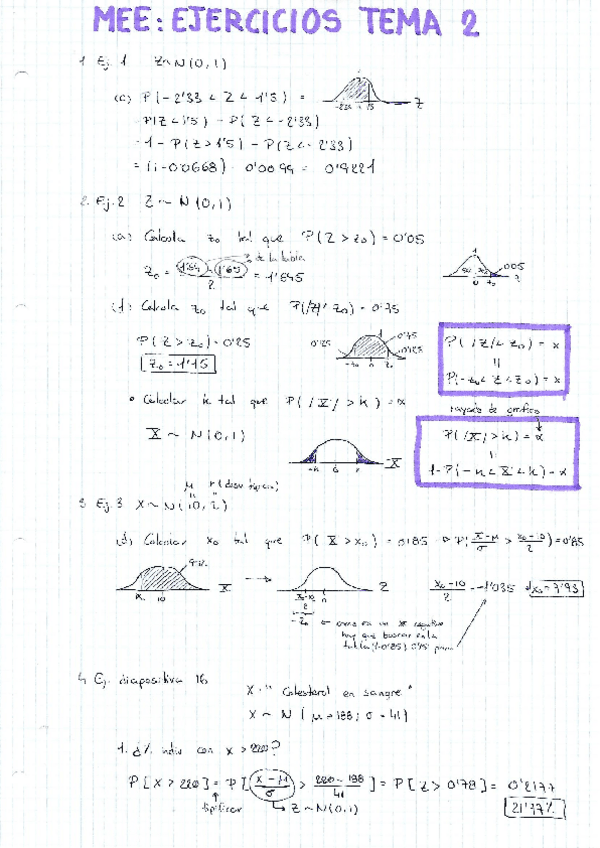 MEE: EJERCICIOS TEMA 2
1 Ej 1 Z~N(0,1)
(c) P(-2'33 < Z < 1'5) =
-2'33 1'5 Z
P(Z<1'5) - P(Z<-2'33)
1 - P(Z>1'5) - P(Z<-2'33)
= (1-0'0668) - 0'0099 = 0'9221
2. Ej. 2 Z ~ N(0,1)
(a) Calcula z₀ tal que P(Z > z₀) = 0'05
de la tabla
z₀ = 1'64 1'65 / 2 = 1'645
0 z₀ 005 Z
Calcula z₀ tal que P(/Z/< z₀) = 0'75
P(Z > z₀) = 0'125
z₀ = 1'15
0'125 0'75 0'125
-z₀ 0 z₀
P(/Z/< z₀) = x
||
P(-z₀ < Z < z₀) = x
• Calcular k tal que P(/X/ > k) = α
X ~ N(0,1)
-k 0 k X
rayado de gráfico
P(/X/ > k) = α
||
1-P(-k < X < k) = α
μ σ
3 Ej. 3 X ~ N(10, 2)
(d) Calcular x₀ tal que P(X > x₀) = 0'85 P(X-μ/σ > x₀-10/2) = 0'85
x₀ 10 X → x₀-10/2 0 Z
-z₀
x₀-10/2 = -1'035 x₀ = 7'93
hay que buscar en la
4 Ej. diapositiva 16
X = "Colesterol en sangre"
X ~ N(μ = 188; σ = 41)
1. ¿% indiv con x > 220?
P[X > 220] = P[X-μ/σ > 220-188/41] = P[Z > 0'78] = 0'2177
tipificar → Z ~ N(0,1)
21'77%